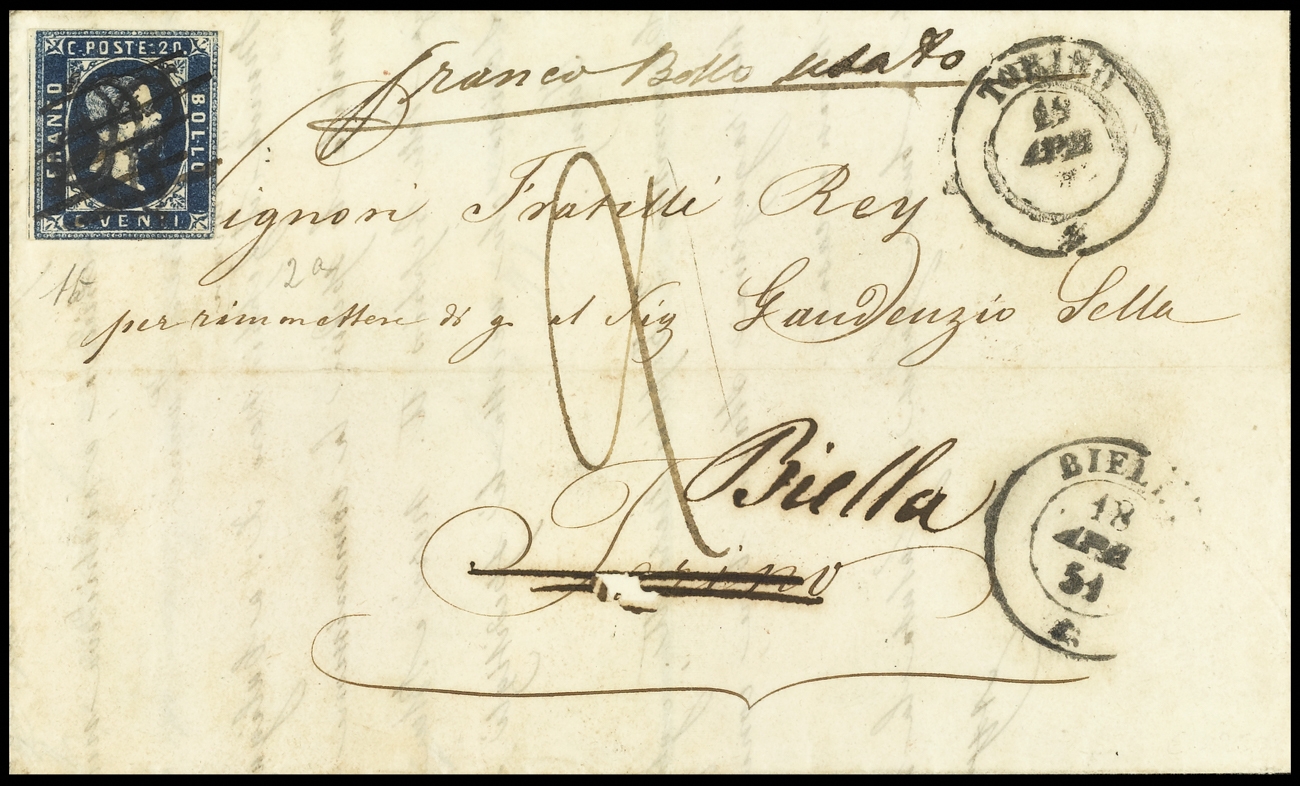 C. POSTE. 20.
FRANCO
BOLLO
C. VENTI
franco Bollo usato
TORINO
19
APR
2
Signori Fratelli Rey
1b
2a
per rimmettere di g. al Sig Gaudenzio Sella
2
Biella
Torino
BIEL
18
APR
51